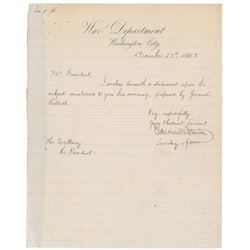 War Department
Washington City,
December 23rd, 186
Mr. President,
I enclose herewith a statement upon the
subject mentioned to you this morning, prepared by General
Halleck.
Very respectfully
Your obedient Servant
Edwin M Stanton
Secretary of War
His Excellency
the President.